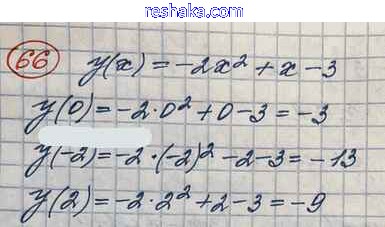 reshaka.com
66 y(x) = -2x² + x - 3
y(0) = -2·0² + 0 - 3 = -3
y(-2) = -2·(-2)² - 2 - 3 = -13
y(2) = -2·2² + 2 - 3 = -9